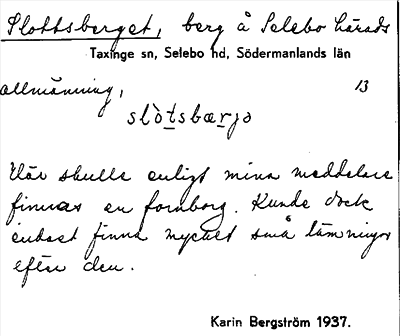 Slottsberget, berg å Selebo härads
Taxinge sn, Selebo hd, Södermanlands län
allmänning,
13
slòt̠sbær̠jə
Här skulle enligt mina meddelare
finnas en fornborg. Kunde dock
endast finna mycket små lämningar
efter den.
Karin Bergström 1937.